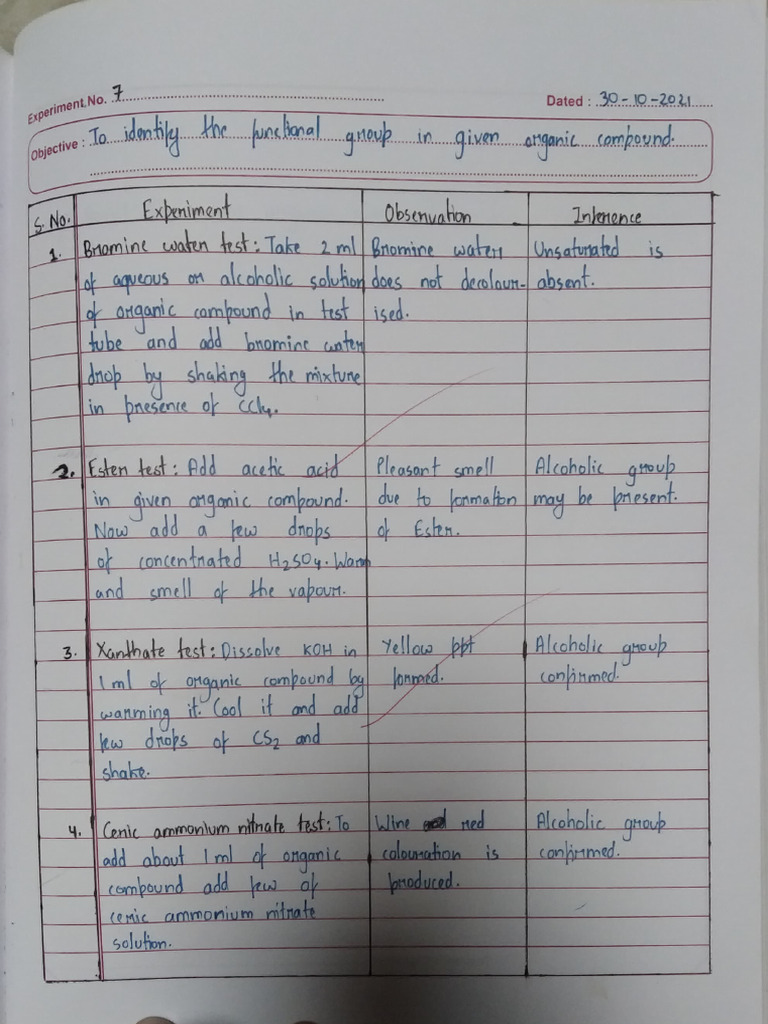 Experiment No. 7
Dated : 30-10-2021
Objective : To identify the functional group in given organic compound.
S. No. Experiment Observation Inference
1. Bromine water test: Take 2 ml Bromine water Unsaturated is
of aqueous or alcoholic solution does not decolour- absent.
of organic compound in test ised.
tube and add bromine water
drop by shaking the mixture
in presence of CCl4.
2. Ester test: Add acetic acid Pleasant smell Alcoholic group
in given organic compound. due to formation may be present.
Now add a few drops of Ester.
of concentrated H2SO4. Warm
and smell of the vapour.
3. Xanthate test: Dissolve KOH in Yellow ppt Alcoholic group
1 ml of organic compound by formed. confirmed.
warming it. Cool it and add
few drops of CS2 and
shake.
4. Ceric ammonium nitrate test: To Wine red Alcoholic group
add about 1 ml of organic colouration is confirmed.
compound add few of produced.
ceric ammonium nitrate
solution.